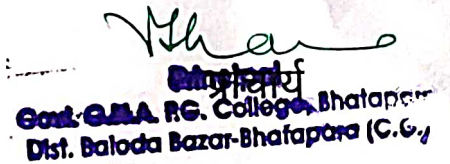 प्राचार्य
Govt. G.N.A. P.G. College, Bhatapara
Dist. Baloda Bazar-Bhatapara (C.G.)